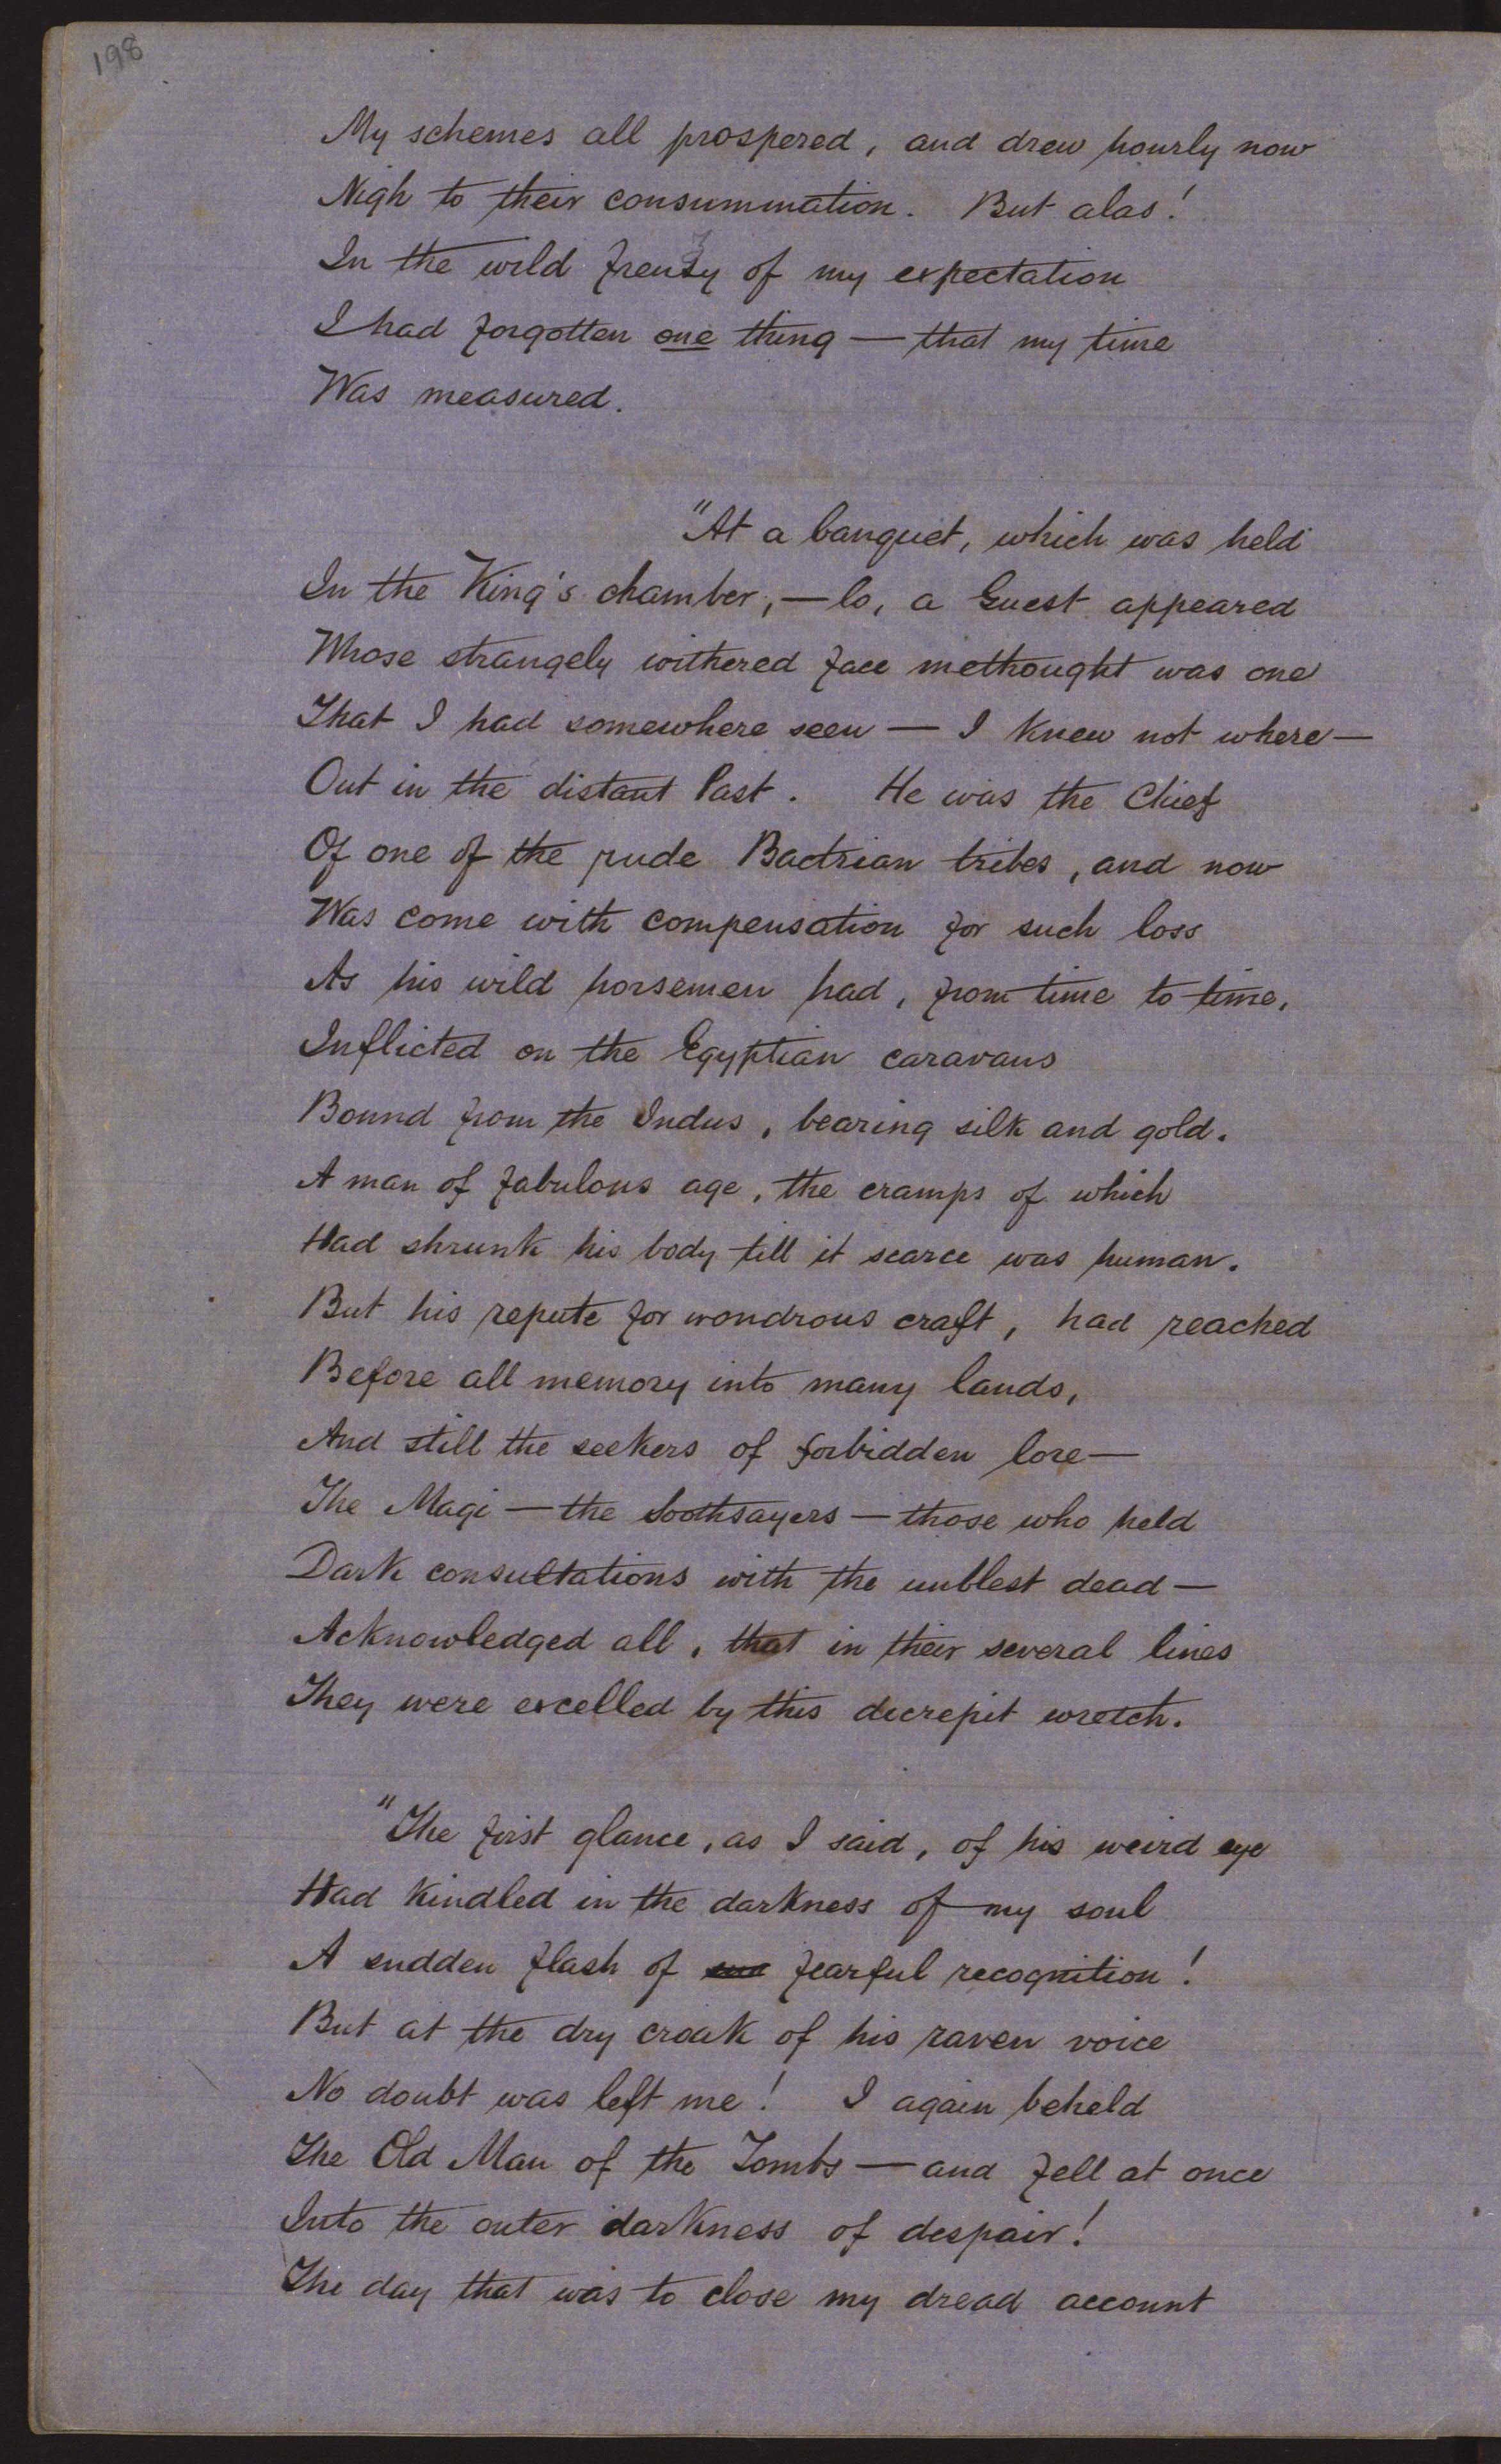 198
My schemes all prospered, and drew hourly now
Nigh to their consummation. But alas!
In the wild frenzy of my expectation
I had forgotten one thing — that my time
Was measured.
"At a banquet, which was held
In the King's chamber, — lo, a Guest appeared
Whose strangely withered face methought was one
That I had somewhere seen — I knew not where —
Out in the distant Past. He was the Chief
Of one of the rude Bactrian tribes, and now
Was come with compensation for such loss
As his wild horsemen had, from time to time,
Inflicted on the Egyptian caravans
Bound from the Indus, bearing silk and gold.
A man of fabulous age, the cramps of which
Had shrunk his body till it scarce was human.
But his repute for wondrous craft, had reached
Before all memory into many lands,
And still the seekers of forbidden lore —
The Magi — the Soothsayers — those who held
Dark consultations with the unblest dead —
Acknowledged all, that in their several lines
They were excelled by this decrepit wretch.
"The first glance, as I said, of his weird eye
Had kindled in the darkness of my soul
A sudden flash of fearful recognition!
But at the dry croak of his raven voice
No doubt was left me! I again beheld
The Old Man of the Tombs — and fell at once
Into the outer darkness of despair!
The day that was to close my dread account